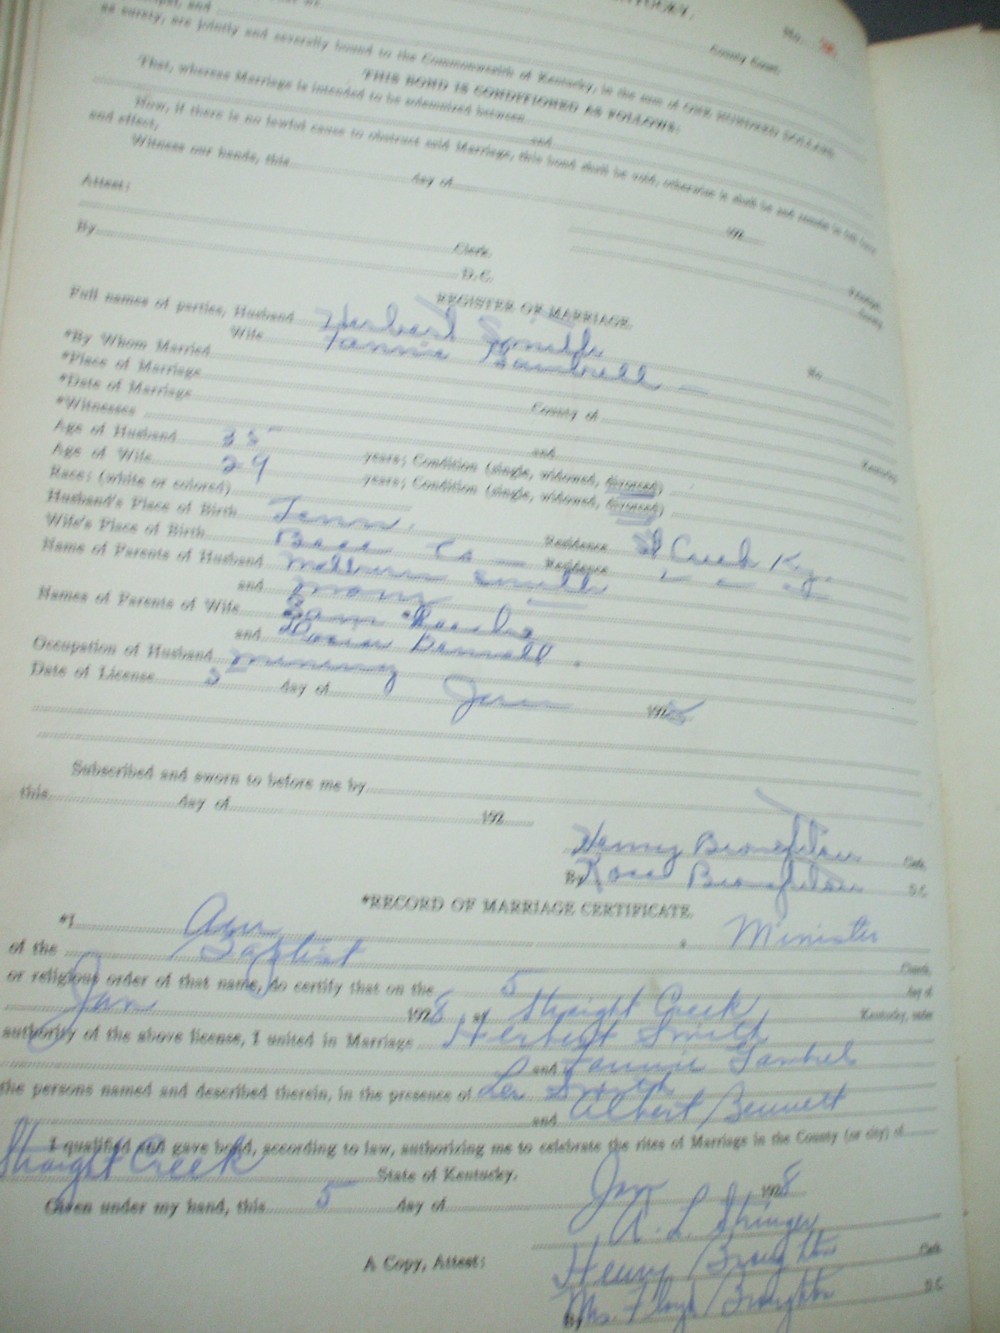 No.
County Court,
as surety, are jointly and severally bound to the Commonwealth of Kentucky, in the sum of ONE HUNDRED DOLLARS
THIS BOND IS CONDITIONED AS FOLLOWS:
That, whereas Marriage is intended to be solemnized between
and
Now, if there is no lawful cause to obstruct said Marriage, this bond shall be void, otherwise it shall be and remain in full force
and effect.
Witness our hands, this day of 192
Attest:
Clerk.
By D.C.
REGISTER OF MARRIAGE
Full names of parties, Husband Herbert Smith
Wife Fannie
*By Whom Married
*Place of Marriage
*Date of Marriage County of Kentucky
*Witnesses and
Age of Husband 35 years; Condition (single, widowed, divorced)
Age of Wife 29 years; Condition (single, widowed, divorced)
Race: (white or colored)
Husband's Place of Birth Tenn. Residence St Creek Ky.
Wife's Place of Birth Co Residence
Name of Parents of Husband Smith
and Mary
Names of Parents of Wife Sam
and
Occupation of Husband mining
Date of License 5 day of Jan 192
Subscribed and sworn to before me by
this day of 192
Henry Clerk
By D.C.
*RECORD OF MARRIAGE CERTIFICATE.
*I Minister
of the Baptist Church,
or religious order of that name, do certify that on the 5 day of
Jan 1928, at Straight Creek Kentucky, under
authority of the above license, I united in Marriage Herbert Smith
and Fannie
the persons named and described therein, in the presence of Smith
and Albert Bennett
I qualified and gave bond, according to law, authorizing me to celebrate the rites of Marriage in the County (or city) of
Straight Creek State of Kentucky.
Given under my hand, this 5 day of Jan 1928
A. L. Springer
A Copy, Attest: Henry Broughton Clerk
By Mrs. Floyd Broughton D.C